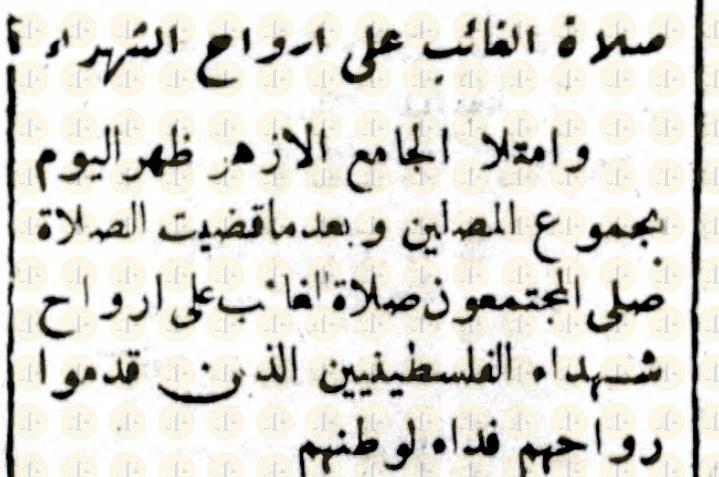 صلاة الغائب على ارواح الشهداء
وامتلا الجامع الازهر ظهر اليوم
بجموع المصلين وبعد ماقضيت الصلاة
صلى المجتمعون صلاة الغائب على ارواح
شهداء الفلسطينيين الذين قدموا
رواحهم فداء لوطنهم